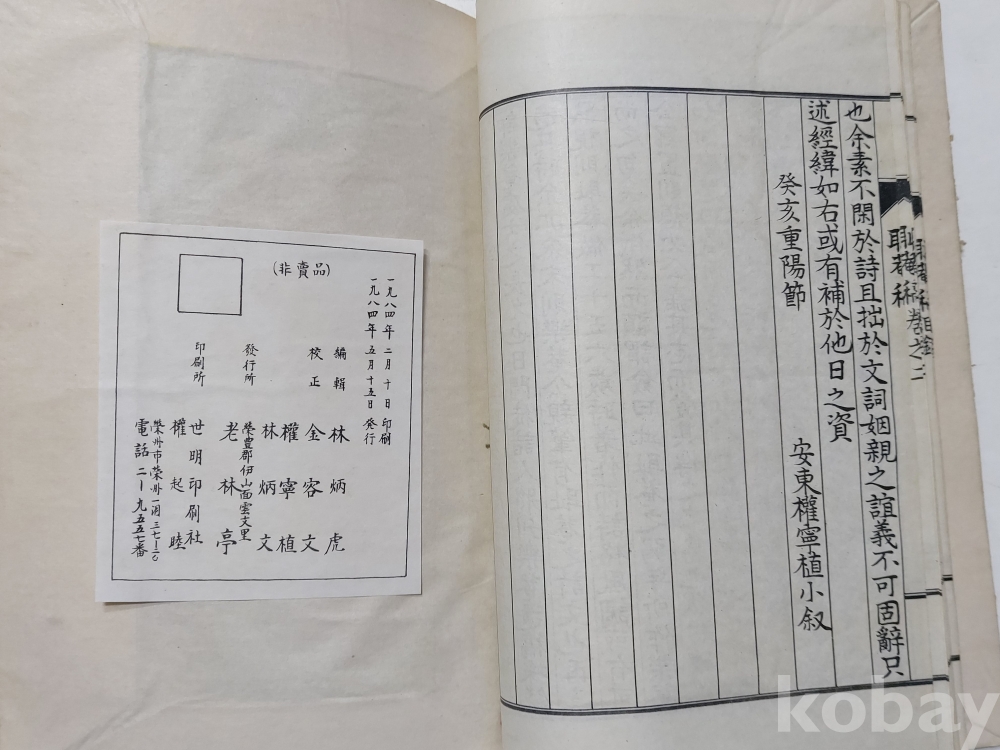 也余素不閑於詩且拙於文詞姻親之誼義不可固辭只
述經緯如右或有補於他日之資
癸亥重陽節 安東權寧植小叙
一九八四年二月十日印刷
一九八四年五月十五日発行
編輯 林炳虎
校正 金容文
權寧植
林炳文
(非賣品)
發行所 榮豊郡伊山面雲文里
老林亭
印刷所 世明印刷社
權起睦
榮州市榮州一洞三七一二〇
電話二ー九五五七番
kobay